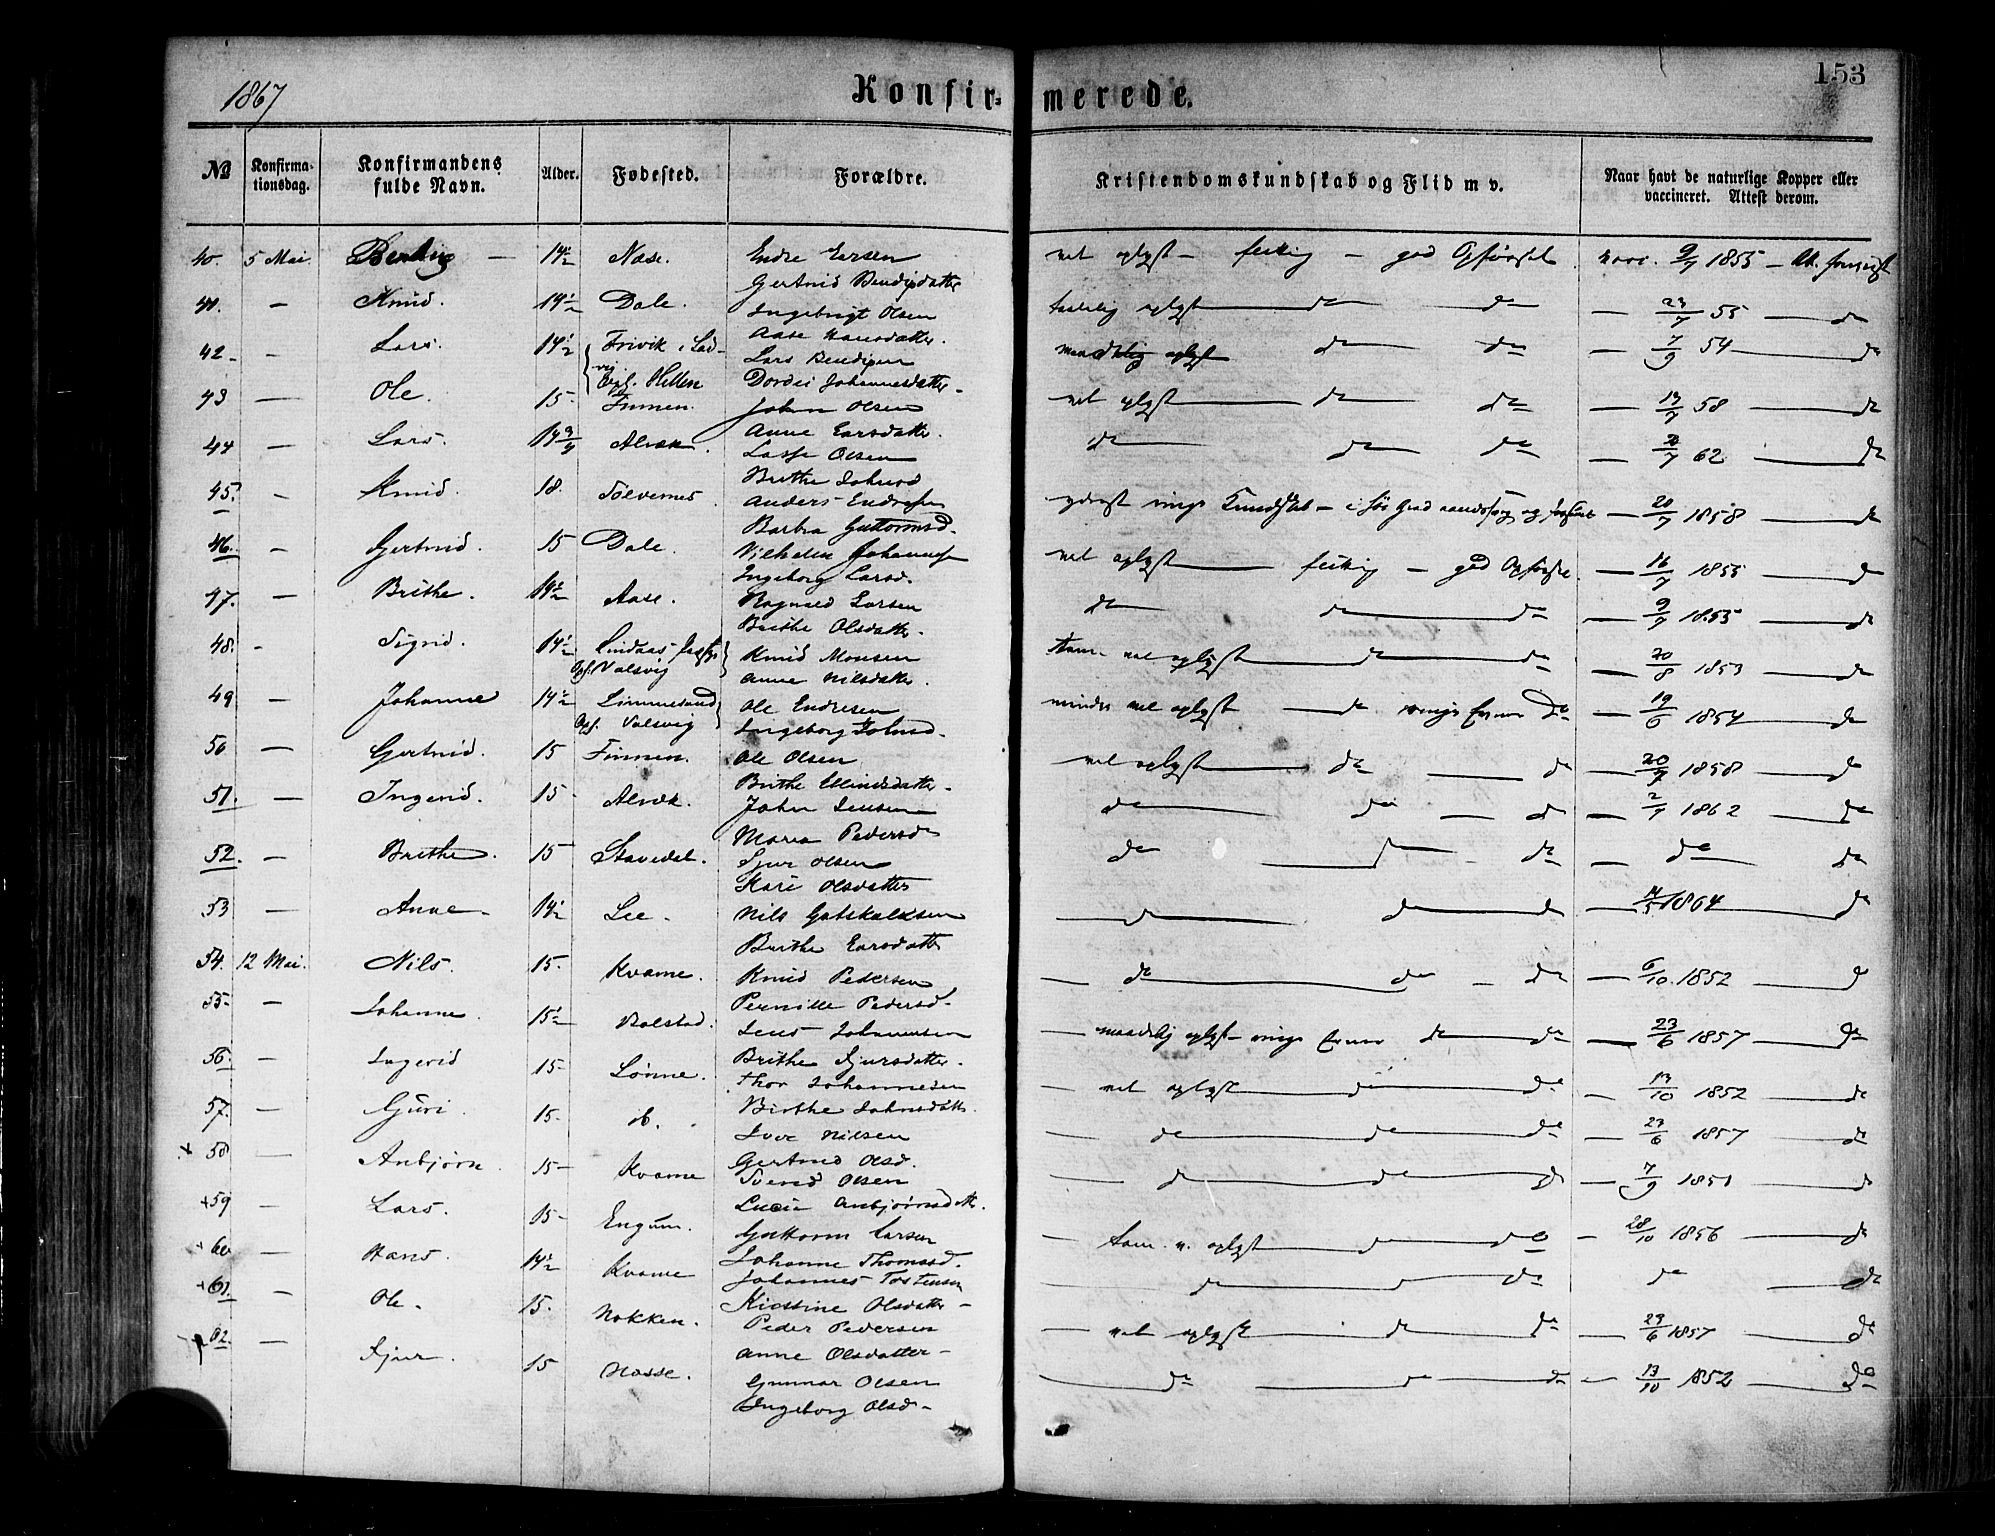 1867 Konfirmerede. 153
No Konfirmationsdag. Konfirmandens fulde Navn. Alder. Fødested. Forældre. Kristendomskundskab og Flid m v. Naar havt de naturlige Kopper eller vaccineret. Attest derom.
40. 5 Mai. 14½ Næse. Endre vel oplyst – flittig – god Opførsel vacc. 9/7 1855 –
Gertrud Bendixdatter
41. – Knud. 14½ Dale. Ingebrigt Olsen oplyst do do – 23/7 55 – do
Aase Hansdatter.
42. – Lars. 14½ Lars maadelig oplyst do do – 7/9 54 – do
Dordei Johannesdatter
43 – Ole. 15 Finnen. John Olsen vel oplyst do do – 58 – do
Anne Larsdatter.
44 – Lars. 14¾ Alvæk. Lasse Olsen do do do – 62 – do
Brithe Johnsd
45. – Knud. 18. Tolvenes. Anders Endresen Kundskab – – 20/7 1858 – do
Barbra Guttormsd.
46. – Gertrud. 15 Dale. Vilhelm vel oplyst – flittig – god Opførsel. – 16/7 1855 – do
Ingeborg Larsd.
47. – Brithe. 14½ Aase. Ragnald Larsen do do do – 9/7 1855 – do
Brithe Olsdatter.
48. – Sigrid. 14½ Lindaas Knud Monsen tem. vel oplyst do do – 20/8 1853 – do
Valsvig Anne Nilsdatter.
49 – Johanne 14½ Ole Endresen mindre vel oplyst – do Do – 19/6 1854 – do
Valsvig Ingeborg Johnsd.
50 – Gertrud. 15 Finnen. Ole Olsen vel oplyst do do – 20/7 1858 – do
Brithe
51. – Ingerid. 15 Alvæk. John Jensen do do do – 2/7 1862 – do
Maria Pedersd
52. – Brithe. 15 Stavedal. Sjur Olsen do do – do do
Kari Olsdatter
53 – Anne. 14½ Lee. Nils Gotskalksen do do do – 1864 – do
Brithe Larsdatter
54. 12 Mai. Nils. 15. Kvame. Knud Pedersen – do do – do – 6/10 1852 – do
Pernille Pedersd.
55 – Johanne. 15½ Rolstad. Jens Johannesen – maadelig oplyst – do do – 23/6 1857 – do
Brithe Sjursdatter.
56. – Ingerid 15 Lønne. Thor Johannesen – vel oplyst do do – 13/10 1852 – do
Brithe Johnsdatter.
57. – Guri. 15. do. Iver Nilsen – do do do – 23/6 1857 – do
Gertrud Olsd.
+ 58 – Anbjørn. 15 – Kvame Svend Olsen – do do do – 7/9 1851 – do
Lucia Anbjørnsdatter.
+ 59 – Lars. 15 – Engum. Guttorm Larsen – tem. v. oplyst do do – 28/10 1856 – do
Johanne Thomasd.
+ 60 – Hans. 14½ Kvame Johannes Torstensen do do do do do
Kirstine Olsdatter –
+ 61. – Ole. 15. Nokken. Peder Pedersen – vel oplyst do do – 23/6 1857 – do
Anne Olsdatter –
62. – Sjur. 15 Hosse. Gunnar Olsen do do do – 13/10 1852 – do
Ingeborg Olsd –